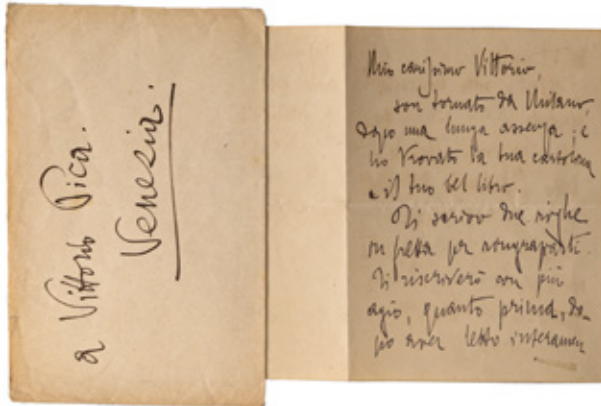 a Vittorio Pica.
Venezia.
Mio carissimo Vittorio,
son tornato da Milano,
dopo una lunga assenza; e
ho trovato la tua cartolina
e il tuo bel libro.
Ti scrivo due righe
in fretta per ringraziarti.
Ti riscriverò con più
agio, quanto prima, do-
po aver letto interamen